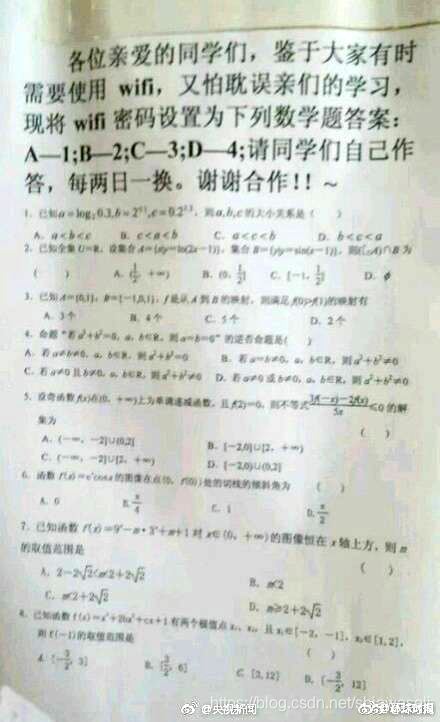 各位亲爱的同学们，鉴于大家有时
需要使用 wifi，又怕耽误亲们的学习，
现将 wifi 密码设置为下列数学题答案：
A—1;B—2;C—3;D—4;请同学们自己作
答，每两日一换。谢谢合作！！~
1. 已知a=log₂0.3,b=2^0.1,c=0.2^1.3，则a,b,c的大小关系是（ ）
A. a<b<c B. c<a<b C. a<c<b D. b<c<a
2. 已知全集U=R，设集合A={x|y=ln(2x-1)}，集合B={y|y=sin(x-1)}，则(∁UA)∩B为
（ ） A. (1/2, +∞) B. (0, 1/2] C. [-1, 1/2] D. ϕ
3. 已知A={0,1}，B={-1,0,1}，f是从A到B的映射，则满足f(0)>f(1)的映射有
A. 3个 B. 4个 C. 5个 D. 2个
4. 命题“若a²+b²=0，a，b∈R，则a=b=0”的逆否命题是( )
A. 若a≠b≠0，a，b∈R，则a²+b²=0 B. 若a=b≠0，a，b∈R，则a²+b²≠0
C. 若a≠0且b≠0，a，b∈R，则a²+b²≠0 D. 若a≠0或b≠0，a，b∈R，则a²+b²≠0
5. 设奇函数f(x)在(0，+∞)上为单调递减函数，且f(2)=0，则不等式 3f(-x)-2f(x)/5x ≤0 的解
集为 ( )
A. (-∞，-2]∪(0,2] B. [-2,0]∪[2，+∞)
C. (-∞，-2]∪[2，+∞) D. [-2,0)∪(0,2]
6. 函数 f(x)=eˣcosx的图像在点(0，f(0))处的切线的倾斜角为 ( )
A. 0 B. π/4 C. 1 D. π/2
7. 已知函数 f(x)=9ˣ-m·3ˣ+m+1 对 x∈(0，+∞)的图像恒在 x 轴上方，则 m
的取值范围是 ( )
A. 2-2√2<m<2+2√2 B. m<2
C. m<2+2√2 D. m≥2+2√2
8. 已知函数 f(x)=x³+2bx²+cx+1 有两个极值点 x₁、x₂，且 x₁∈[-2，-1]，x₂∈[1,2]，
则 f(-1)的取值范围是 ( )
A. [-3/2, 3] B. [3/2, 6] C. [3,12] D. [-3/2, 12]
@央视新闻
@环球网